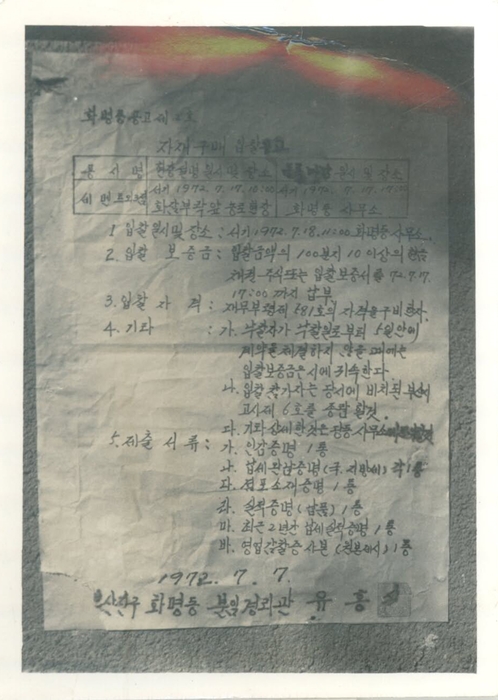 화평동공고제 호
자재구매 입찰공고
품 서 명 현장설명 일시 및 장소 일시 및 장소
시멘트 서기 1972. 7. 17. 10:00 서기 1972. 7. 17. 17:00
화평동 사무소
1. 입찰일시 및 장소 : 서기 1972. 7. 18. 11:00 화평동 사무소.
2. 입찰 보증금 : 입찰금액의 100분지 10 이상의 현금
채권 주식 또는 입찰보증서를 72. 7. 17.
17:00 까지 납부.
3. 입찰 자격 : 재무부령제 581호의 자격을 구비한자.
4. 기타 : 가. 낙찰자가 낙찰일로부터 5일안에
계약을 체결하지 않을 때에는
입찰보증금은 시에 귀속한다.
나. 입찰 참가자는 당서에 비치된
고사제 6호를 것.
다. 기타 상세한것은 당동 사무소
5. 제출 서류 : 가. 인감증명 1통
나. 납세완납증명 (국. 지방세) 각 1통
다. 점포소재증명 1통
라. 실적증명 (납품) 1통
마. 최근 2년간 납세실적증명 1통
바. 영업감찰증 사본 (원본제시) 1통
1972. 7. 7.
화평동 분임경리관 유 홍